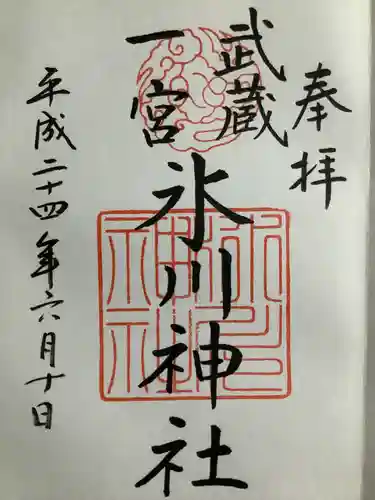 奉拝
武蔵
一宮
氷川神社
平成二十四年六月十日
氷川神社